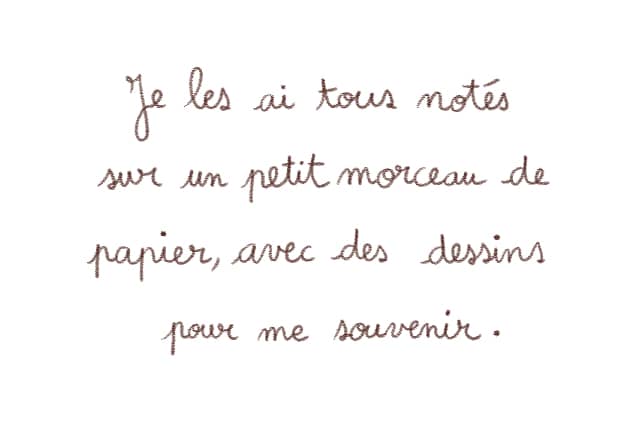 Je les ai tous notés
sur un petit morceau de
papier, avec des dessins
pour me souvenir.